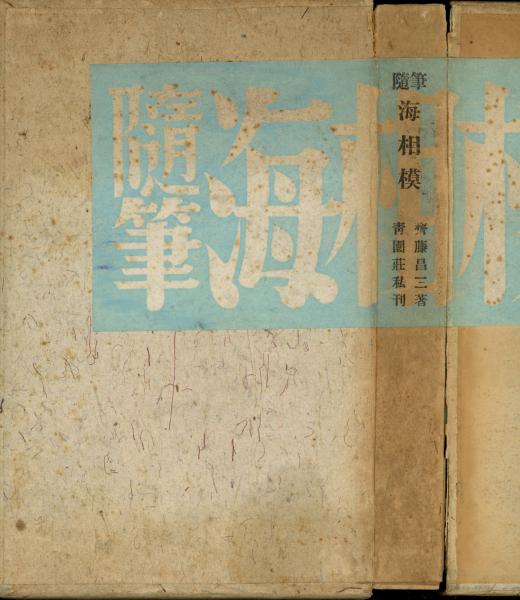 隨筆
海相模
隨筆
海相模
齊藤昌三著
靑園莊私刊